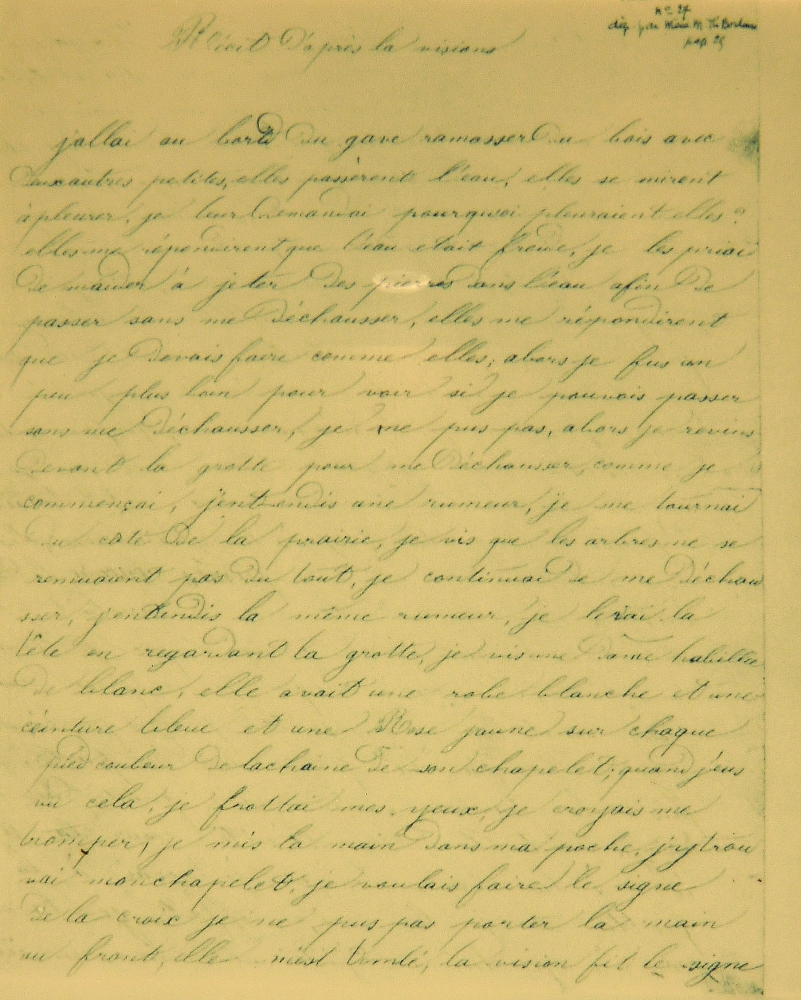 Nº 27
pag 29
Récit d'après la visions
j'allai au bord du gave ramasser du bois avec
deux autres petites, elles passèrent l'eau, elles se mirent
à pleurer, je leur demandai pourquoi pleuraient elles?
elles me répondirent que l'eau etait froide, je les priai
de maider à jeter des pierres dans l'eau afin de
passer sans me déchausser, elles me répondirent
que je devais faire comme elles; alors je fus un
peu plus loin pour voir si je pouvais passer
sans me déchausser, je ne pus pas, alors je revins
devant la grotte pour me déchausser, comme je
commençai, j'entendis une rumeur, je me tournai
du coté de la prairie, je vis que les arbres ne se
remuaient pas du tout, je continuai de me déchau
sser, j'entendis la même rumeur, je levai la
tête en regardant la grotte, je vis une dame habillée
de blanc, elle avait une robe blanche et une
ceinture bleue et une Rose jaune sur chaque
pied couleur de lachaine de son chapelet; quand j'eus
vu cela, je frottai mes yeux, je croyais me
tromper; je mis la main dans ma poche, j'y trou
vai monchapelet, je voulais faire le signe
de la croix je ne pus pas porter la main
au front, elle m'est tombé, la vision fit le signe